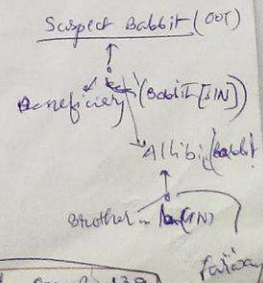 Suspect Babbit (OUT)
Beneficiery (Babbit [IN])
Allibi Babbit
Brother in law (IN)